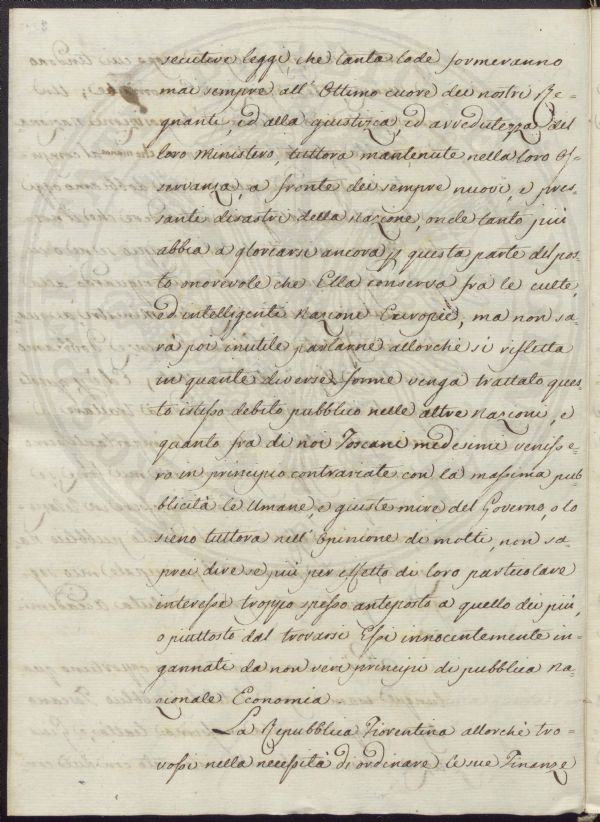 secutive leggi, che tanta lode formeranno
mai sempre all' Ottimo cuore dei nostri Re=
gnanti, ed alla giustizia, ed avvedutezza del
loro Ministero, tuttora mantenute nella loro Os=
servanza, a fronte dei sempre nuovi, e pres=
santi disastri della Nazione, onde tanto più
abbia a gloriarsi ancora p questa parte del pos=
to onorevole che Ella conserva fra le culte,
ed intelligenti Nazioni Europee, ma non sa=
rà poi inutile parlarne allorchè si rifletta
in quante diverse forme venga trattato ques=
to istesso debito pubblico nelle altre Nazioni, e
quanto fra di noi Toscani medesimi veniss=
ro in principio contrariate con la massima pub
blicità le Umane, e giuste mire del Governo, o lo
sieno tuttora nell' Opinione di molti, non sa=
prei dire se più per effetto di loro particolare
interesse troppo spesso anteposto a quello dei più,
o piuttosto dal trovarsi Essi innocentemente in=
gannati da non veri principi di pubblica Na=
zionale Economia
La Repubblica Fiorentina allorchè tro=
vossi nella necessità di ordinare le sue Finanze